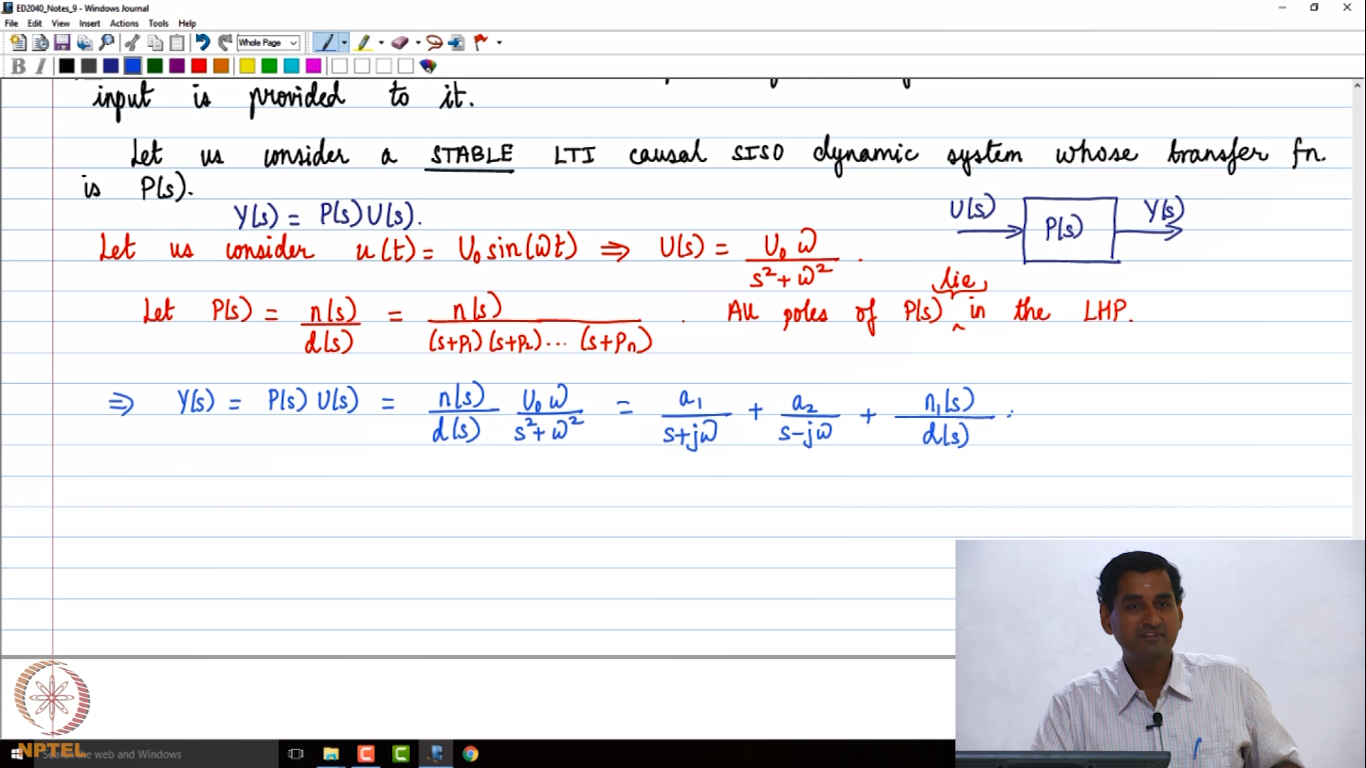 ED2040_Notes_9 - Windows Journal
File Edit View Insert Actions Tools Help
Whole Page
B I
input is provided to it.
Let us consider a STABLE LTI causal SISO dynamic system whose transfer fn.
is P(s).
Y(s) = P(s) U(s).
U(s) P(s) Y(s)
Let us consider u(t) = U₀ sin(ωt) ⇒ U(s) = U₀ ω / (s² + ω²) .
Let P(s) = n(s) / d(s) = n(s) / ((s+p₁) (s+p₂) ... (s+pₙ)) . All poles of P(s) lie in the LHP.
⇒ Y(s) = P(s) U(s) = n(s) / d(s) U₀ ω / (s² + ω²) = a₁ / (s+jω) + a₂ / (s-jω) + n₁(s) / d(s) .
NPTEL
the web and Windows